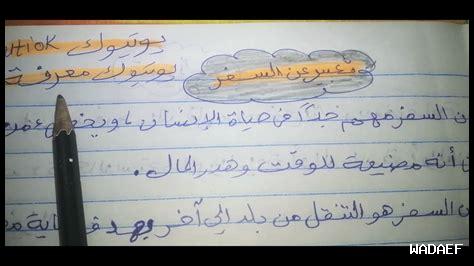 utiok يوتيوك
يوتيوك معرفة
تعبير عن السفر
ن السفر مهم جداً في حياة الإنسان
أنه مضيعة للوقت وهدر المال.
ن السفر هو التنقل من بلد إلى آخر بهدف
WADAEF